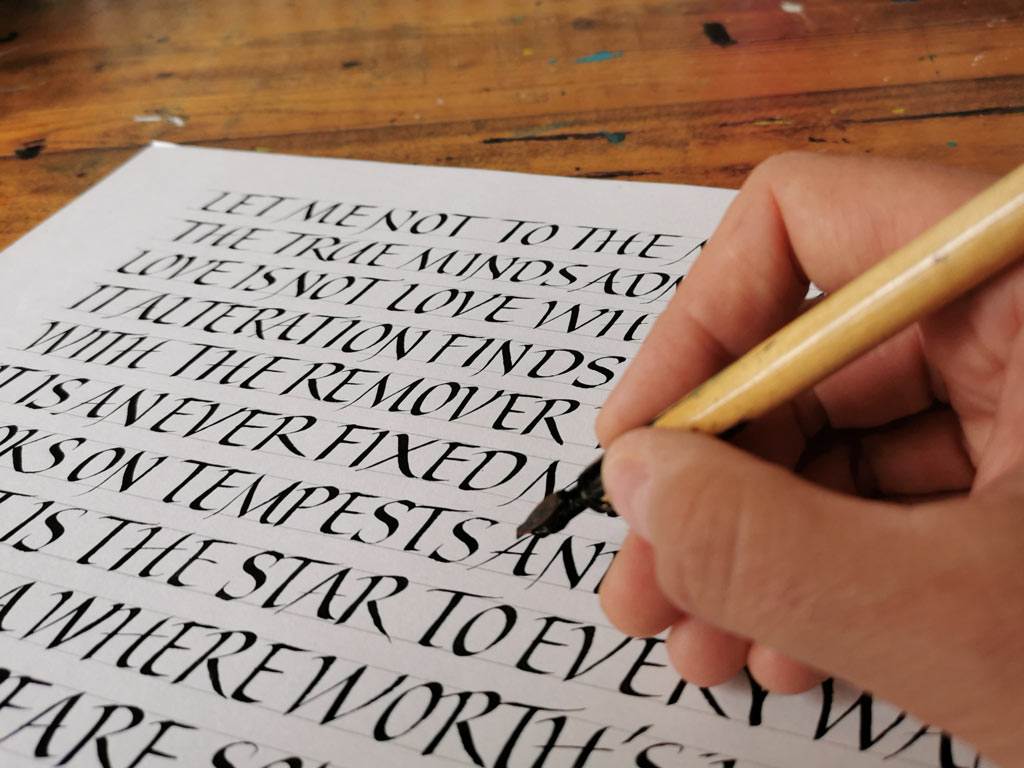 LET ME NOT TO THE
THE TRUE MINDS ADM
LOVE IS NOT LOVE WH
IT ALTERATION FINDS
WITH THE REMOVER
IT IS AN EVER FIXED M
OKS ON TEMPESTS AN
T IS THE STAR TO EVERY WA
WHERE WORTH'S